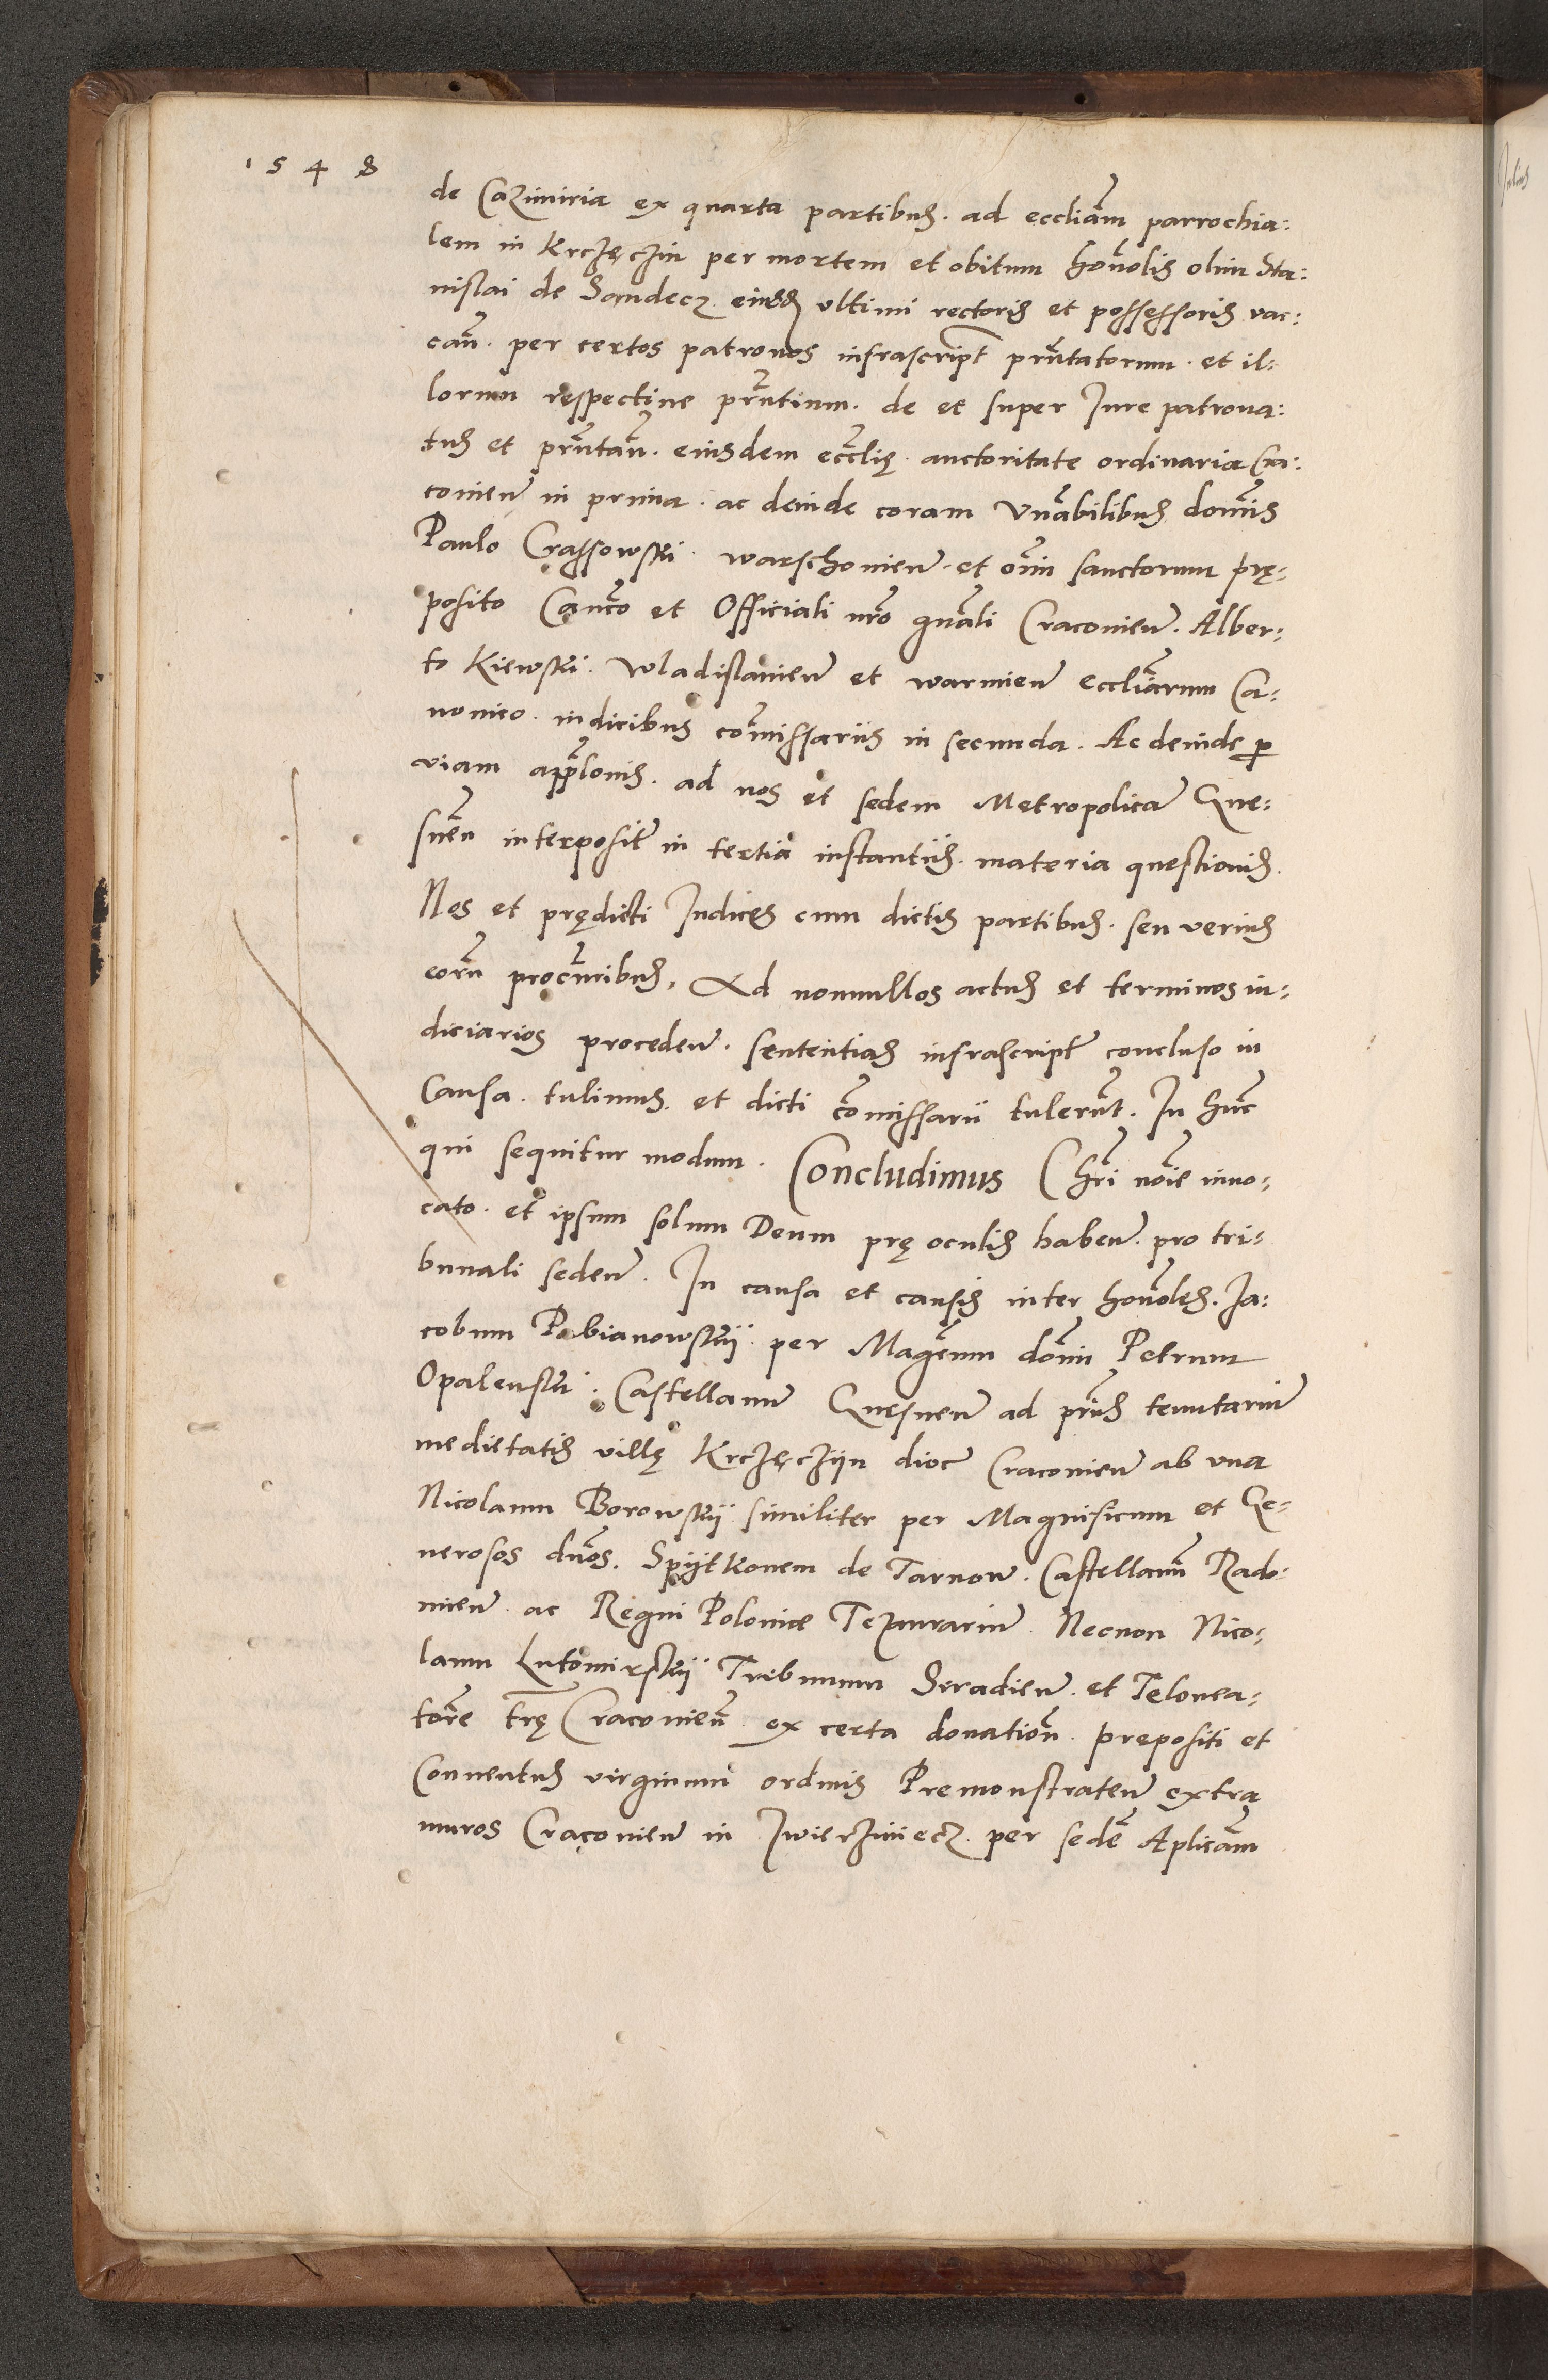 1548
de Cazimiria ex quarta partibus. ad eccliam parrochia:
lem in Krczęczin per mortem et obitum honolis olim Sta:
nislai de Sandecz eiusd ultimi rectoris et possessoris vac:
can. per certos patronos infrascript prntatorum. et il:
lorum respectiue prntium. de et super Iure patrona:
tus et prntan. eiusdem ecclię. auctoritate ordinaria Cra:
couien in prima. ac deinde coram Vnabilibus domis
Paulo Crassowski. warschouien. et oim sanctorum prę:
posito Canco et Officiali nro gnali Cracouien. Alber:
to Kiewski. Wladislauien et warmien eccliarum Ca:
nonico. iudicibus comissariis in secunda. Ac deinde p
viam applonis. ad nos et sedem Metropolica Gne:
snen interposit in tertia instantiis. materia questionis.
Nos et prędicti Iudices cum dictis partibus. seu verius
eoru procuribus, Ad nonnullos actus et terminos iu:
diciarios proceden. sententias infrascript concluso in
Causa. tulimus. et dicti comissarii tulerut. In hunc
qui sequitur modum. Concludimus Chri noie inuo:
cato. et ipsum solum Deum prę oculis haben. pro tri:
bunali seden. In causa et causis inter honoles. Ia:
cobum Pabianowskij. per Magcum domi Petrum
Opalenski. Castellanu Gnesnen ad prns tenutariu
medietatis villę Krczęczijn dioc Cracouien ab vna
Nicolaum Borowskij similiter per Magnificum et Ge:
nerosos dnos. Spijtkonem de Tarnow. Castellanu Rado:
mien. ac Regni Polonie Tezaurariu. Necnon Nico:
laum Lutomirskij Tribunum Siradien. et Telonea:
tore trę Cracouien ex certa donation. prepositi et
Conuentus virginum ordinis Premonstraten extra
muros Cracouien in Zwierziniecz. per sede Aplicam